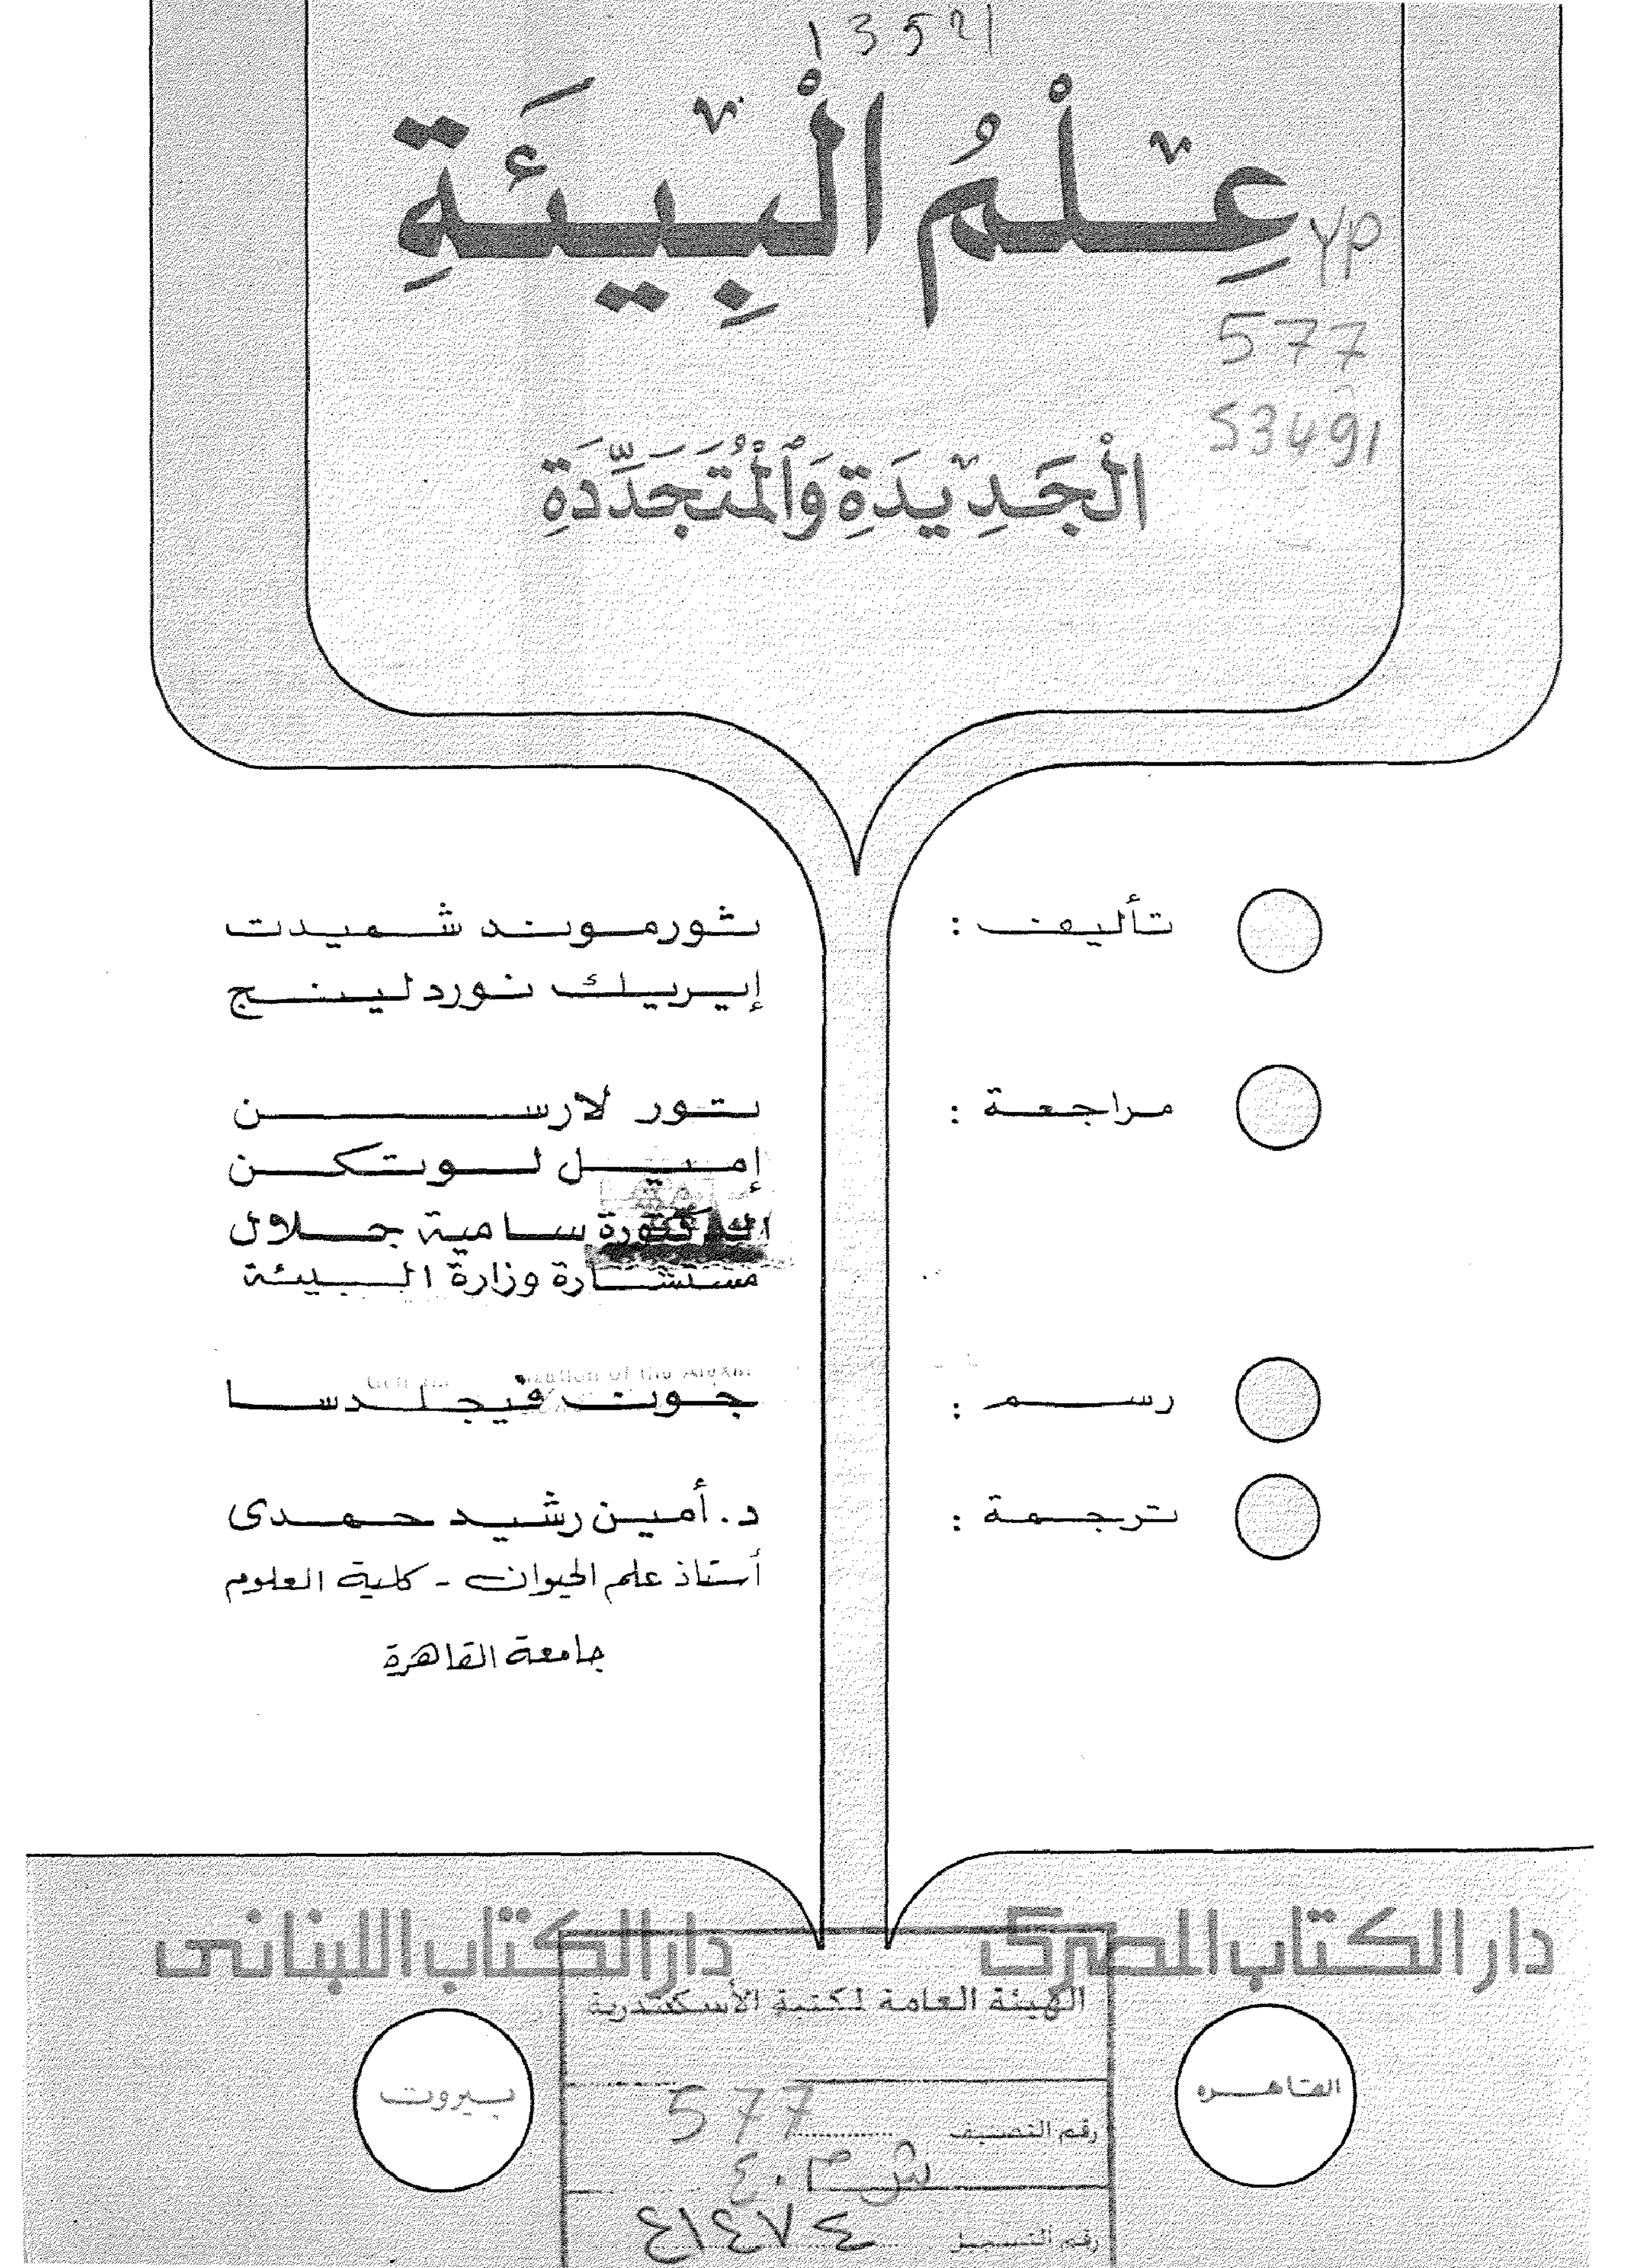 عِلْمُ الْبِيئَةِ
577
الْجَدِيدَةِ وَالْمُتَجَدِّدَةِ
تأليف : ثورموند شميدت
إيريك نوردلينج
مراجعة : تور لارسن
إميل لوتكن
الدكتورة سامية جلال
مستشارة وزارة البيئة
رسم : جون فيجلدسا
ترجمة : د. أمين رشيد حمدى
أستاذ علم الحيوان - كلية العلوم
جامعة القاهرة
دار الكتاب المصرى
دار الكتاب اللبنانى
القاهره
بيروت
الهيئة العامة لمكتبة الأسكندرية
رقم التصنيف 577
رقم التسجيل